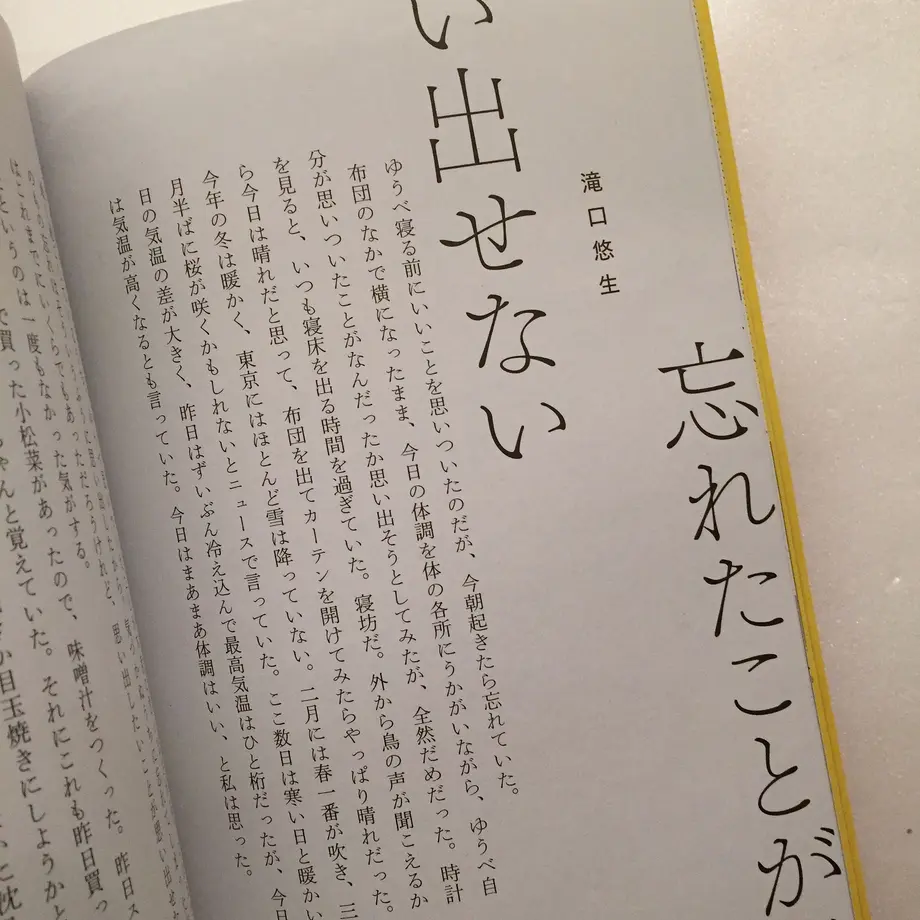 忘れたことが
い出せない
滝口悠生
ゆうべ寝る前にいいことを思いついたのだが、今朝起きたら忘れていた。
布団のなかで横になったまま、今日の体調を体の各所にうかがいながら、ゆうべ自
分が思いついたことがなんだったか思い出そうとしてみたが、全然だめだった。時計
を見ると、いつも寝床を出る時間を過ぎていた。寝坊だ。外から鳥の声が聞こえるか
ら今日は晴れだと思って、布団を出てカーテンを開けてみたらやっぱり晴れだった。
今年の冬は暖かく、東京にはほとんど雪は降っていない。二月には春一番が吹き、三
月半ばに桜が咲くかもしれないとニュースで言っていた。ここ数日は寒い日と暖かい
日の気温の差が大きく、昨日はずいぶん冷え込んで最高気温はひと桁だったが、今日
は気温が高くなるとも言っていた。今日はまあまあ体調はいい、と私は思った。
はこれまでにいくらでもあっただろうけれど、思い出したいことが思い出せ
というのは一度もなかった気がする。
で買った小松菜があったので、味噌汁をつくった。昨日ス
ちゃんと覚えていた。それにこれも昨日買っ
か目玉焼きにしようかと